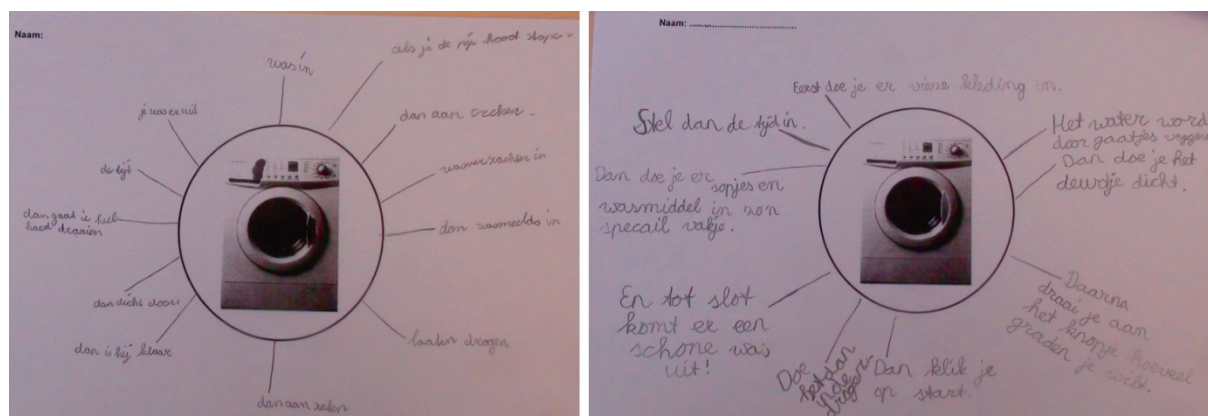 Naam:
was in
als je de
dan aan
wasverzachter in
dan wasmeelds in
laaten drogen
dan aan zeten
dan is hij klaar
dan dicht doen
dan gaat ie heel
hard draaien
de tijt
je was er uit
Naam: ..............................
Eerst doe je er vieze kleding in.
Het water word
door gaatjes
Dan doe je het
deurtje dicht.
Daarna
draai je aan
het knopje hoeveel
graden je wilt.
Dan klik je
op start.
Doe
het dan
in de
droger
En tot slot
komt er een
schone was
uit!
Dan doe je er
sopjes en
wasmiddel in zon
specail vakje.
Stel dan de tijd in.